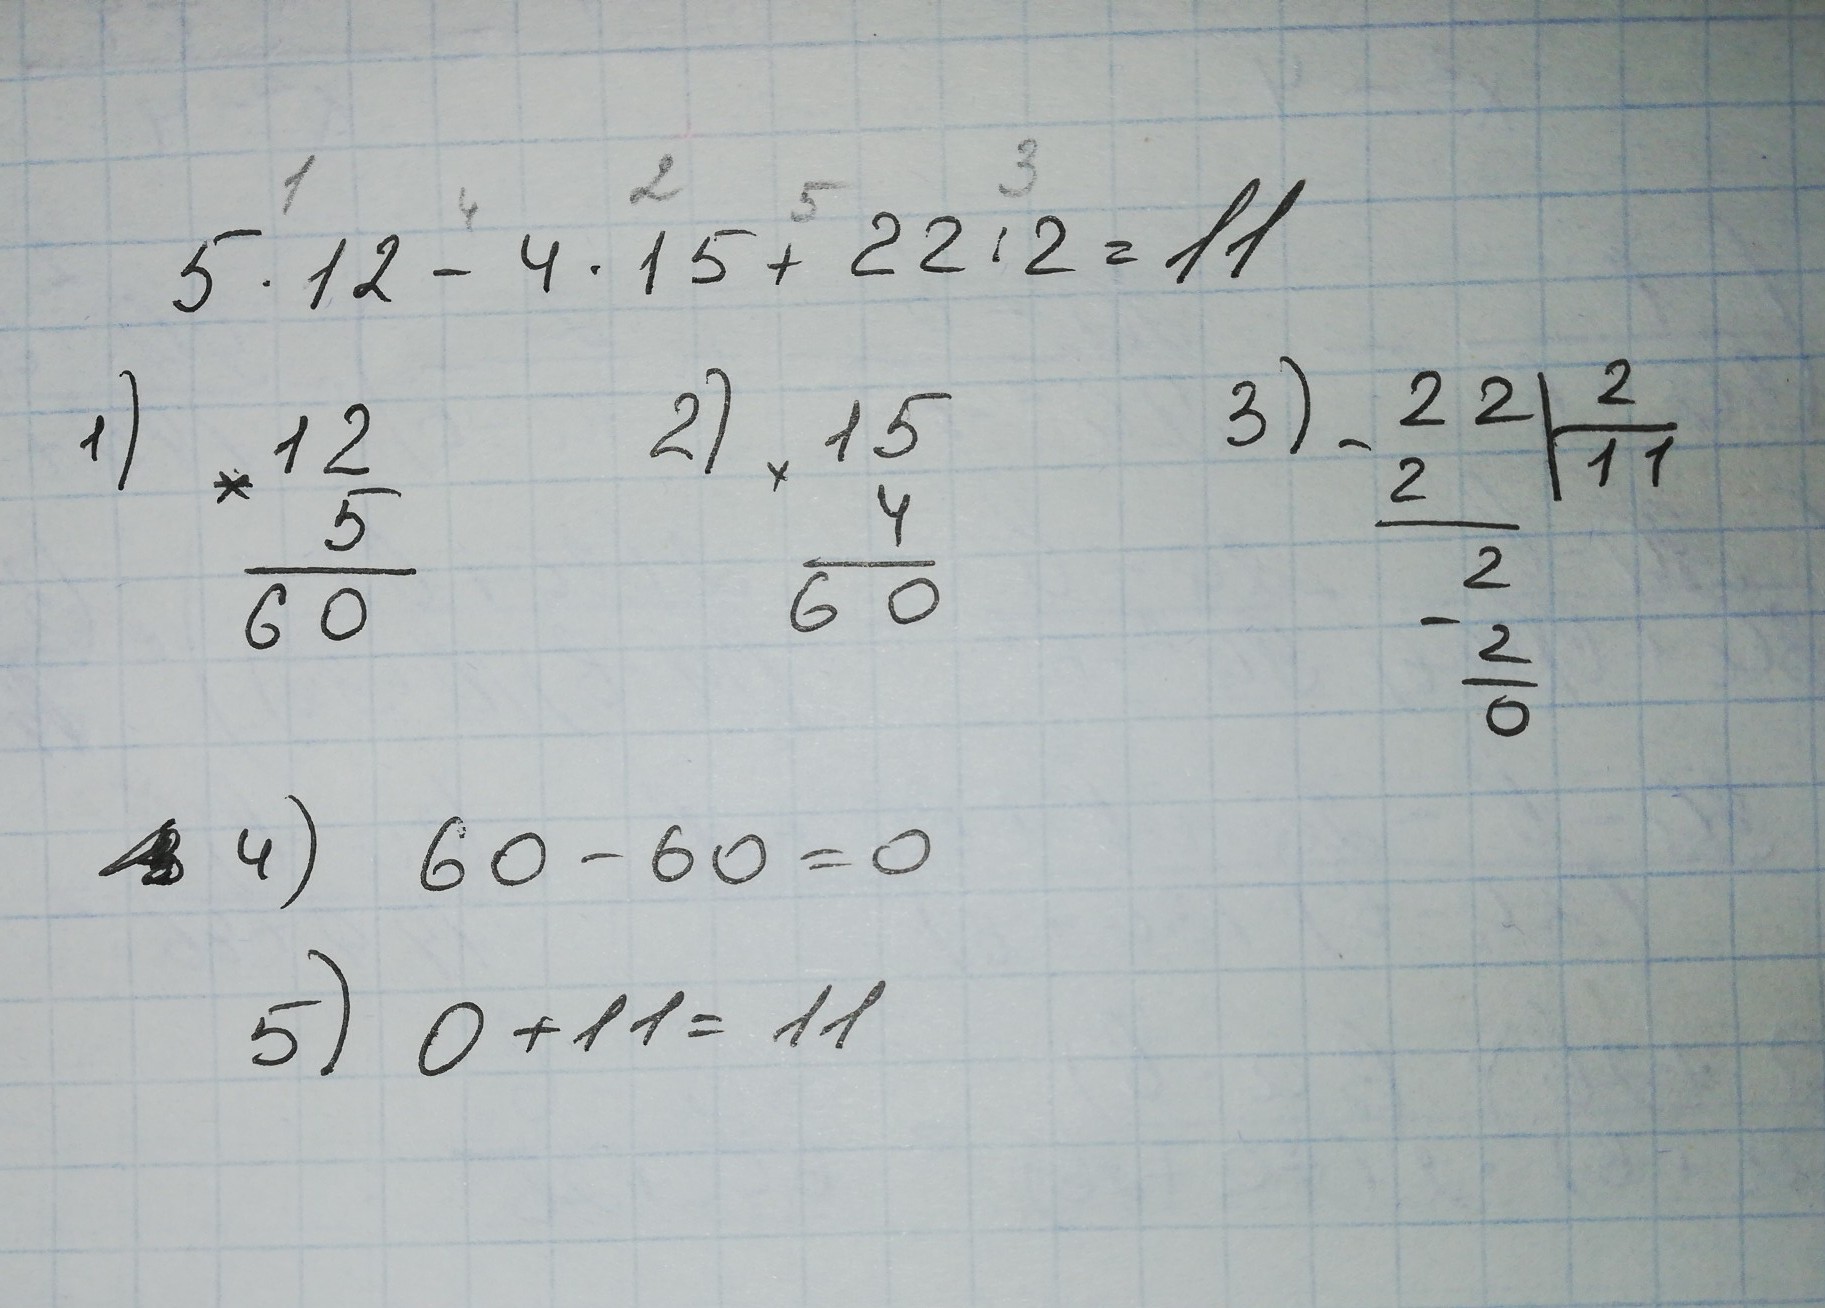 1 4 2 5 3
5 · 12 - 4 · 15 + 22 : 2 = 11
1) × 12
5
60
2) × 15
4
60
3) - 22 | 2
2 | 11
2
- 2
0
4) 60 - 60 = 0
5) 0 + 11 = 11